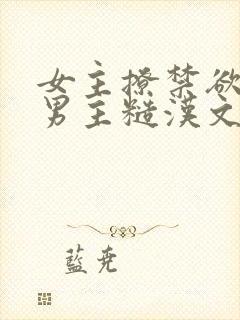 女主撩禁欲
男主糙漢文
藍堯